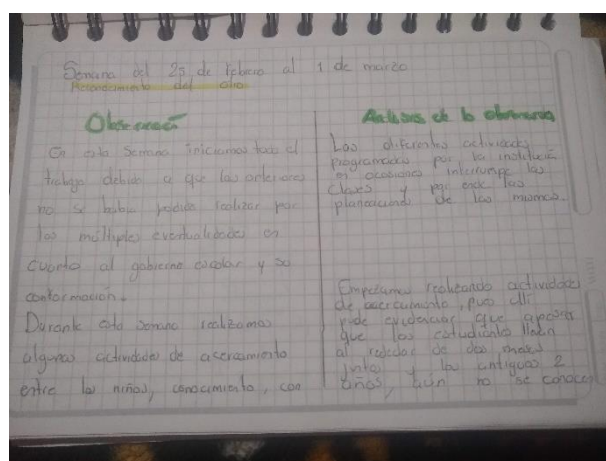 Semana del 25 de febrero al 1 de marzo
Reconocimiento del otro
Observación
En esta Semana iniciamos todo el
trabajo debido a que las anteriores
no se habia podido realizar por
las multiples eventualidades en
cuanto al gobierno escolar y su
conformación.
Durante esta semana realizamos
algunas actividades de acercamiento
entre los niños, conocimiento, con
Analisis de lo observado
Las diferentes actividades
programadas por la institución
en ocasiones interrumpe las
clases y por ende las
planeaciones de las mismas.
Empezamos realizando actividades
de acercamiento, pues alli
pude evidenciar que apesar
que los estudiantes llevan
al rededor de dos meses
juntos y los antiguos 2
años, aún no se conocen